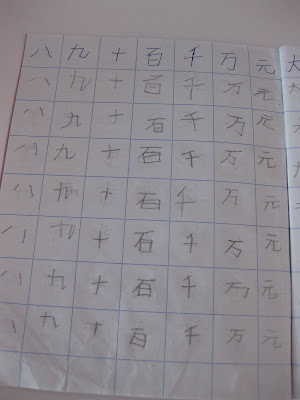 八 九 十 百 千 万 元 大
八 九 十 百 千 万 元 大
八 九 十 百 千 万 元
八 九 十 百 千 万 元
八 九 十 百 千 万 元
八 九 十 百 千 万 元
八 九 十 百 千 万 元
八 九 十 百 千 万 元